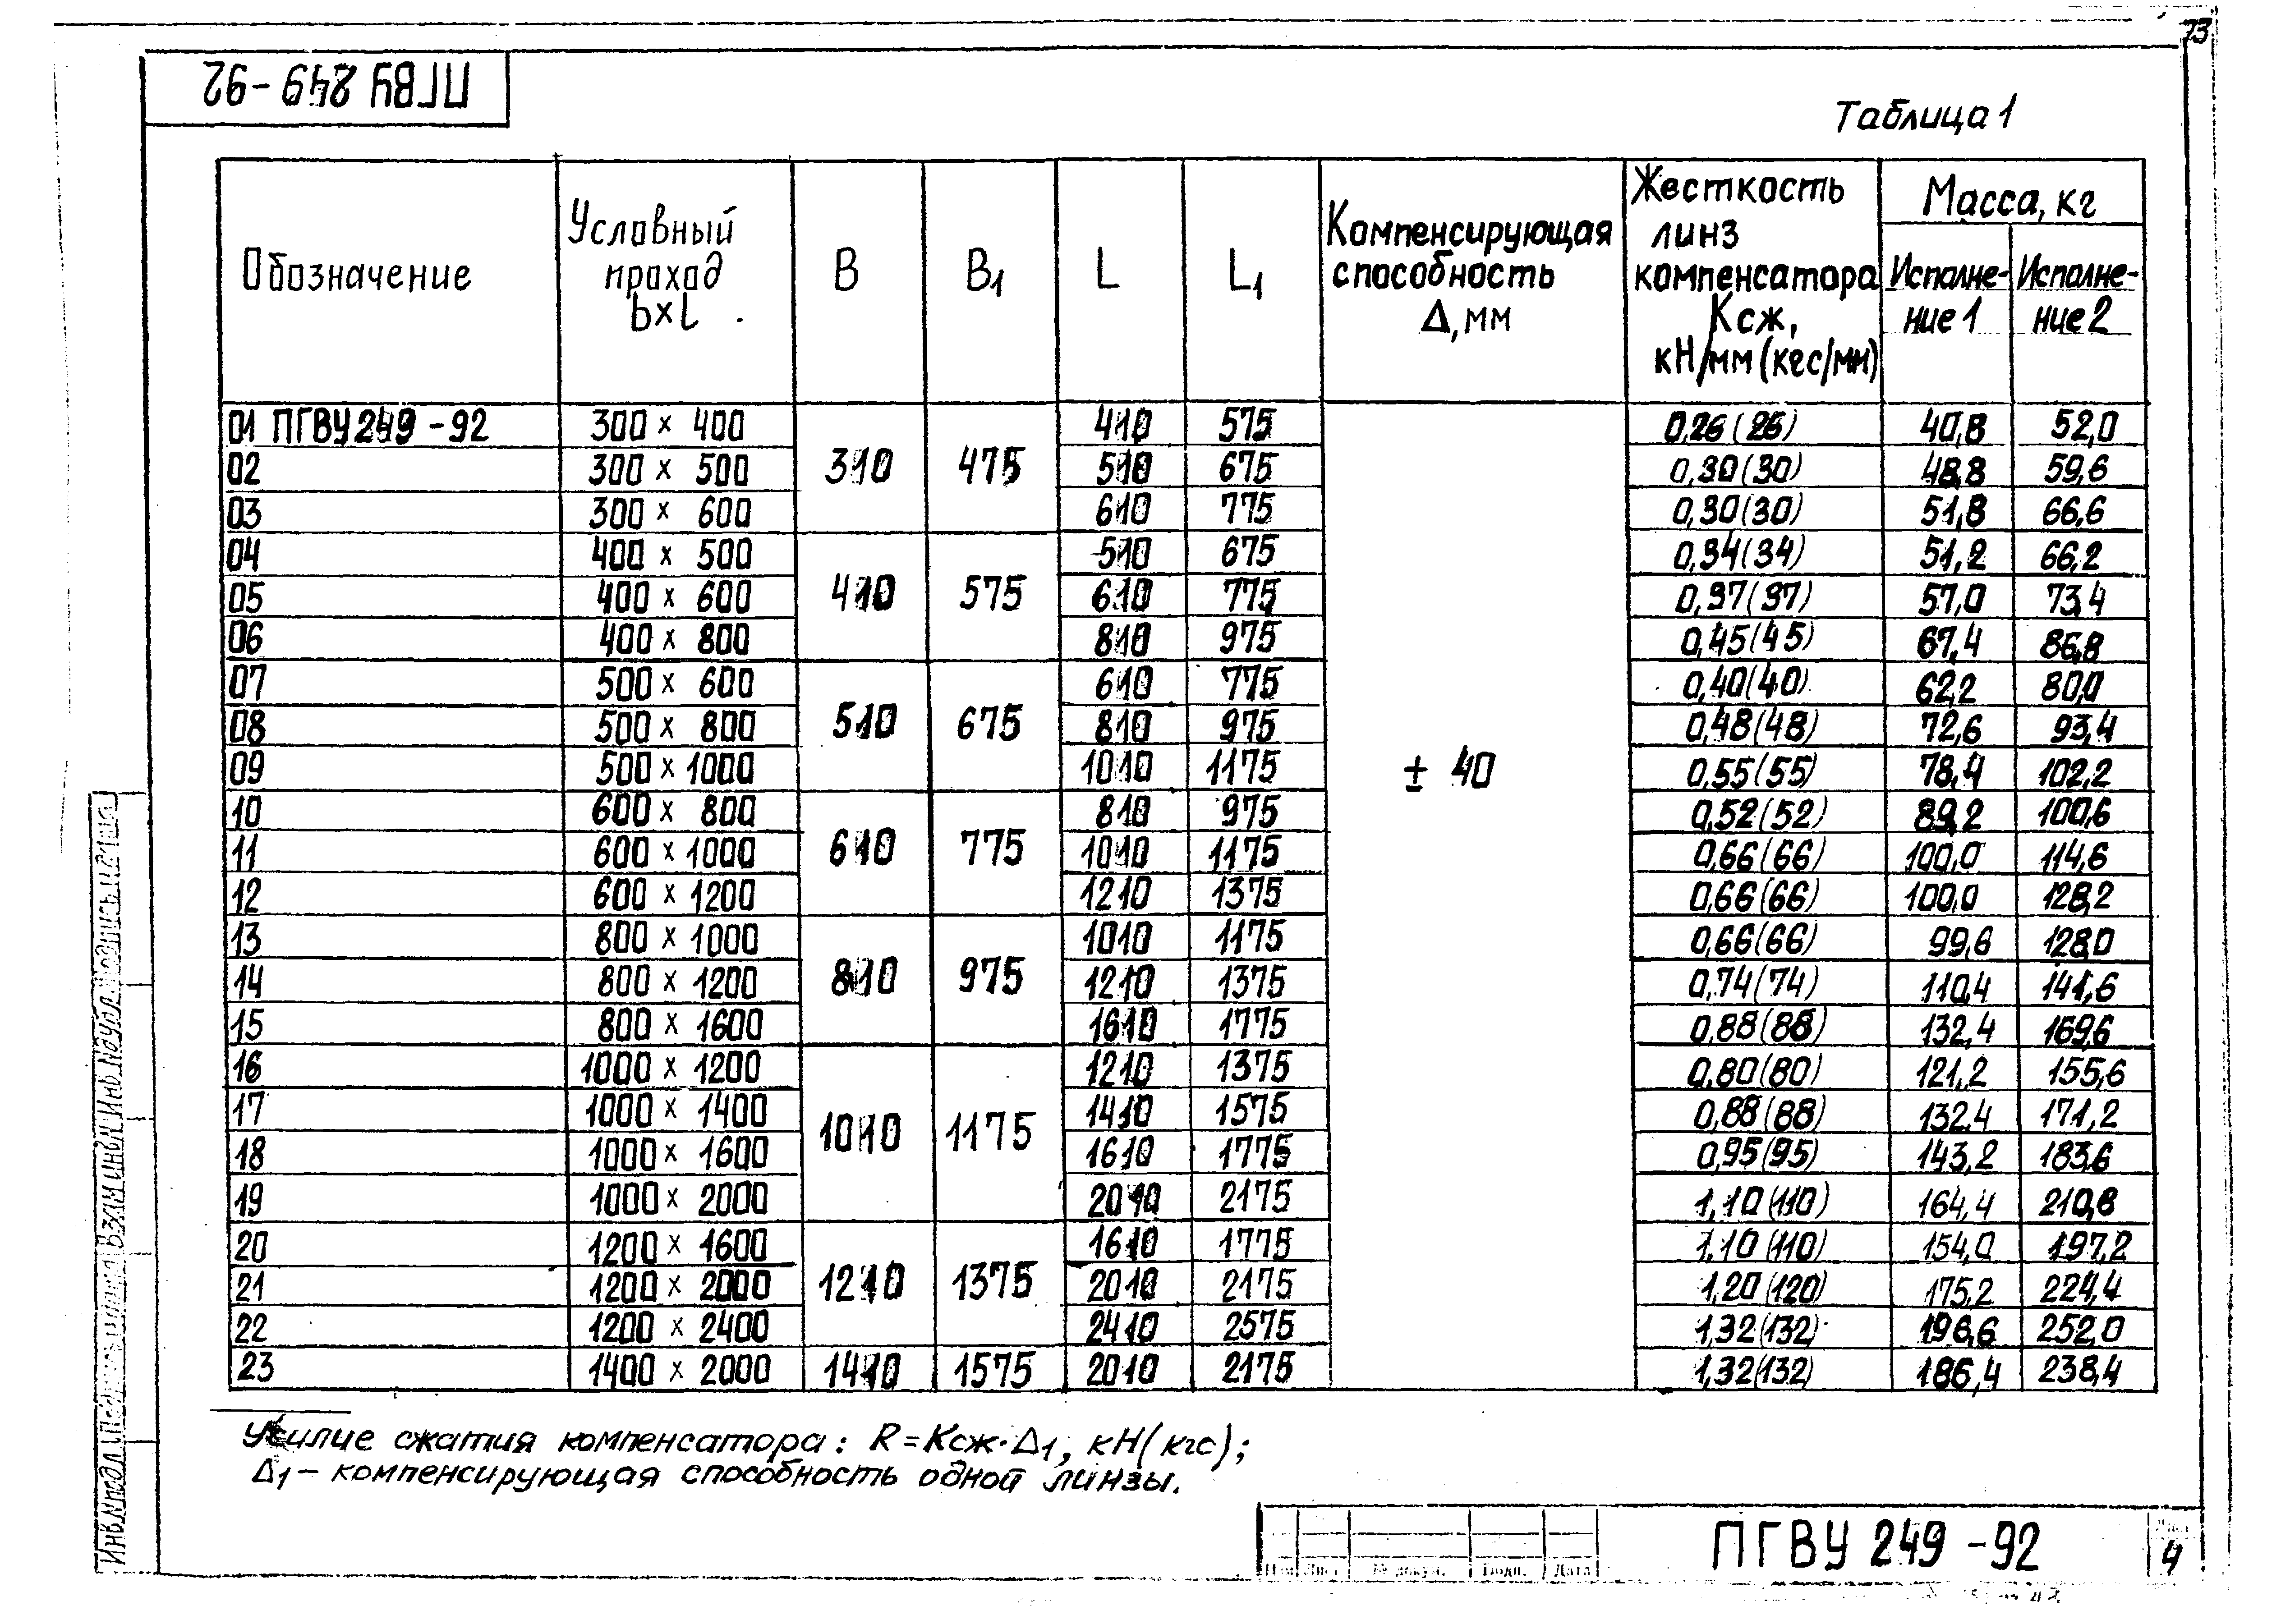 73
ПГВУ 249-92
Таблица 1
Обозначение | Условный проход b×l | B | B1 | L | L1 | Компенсирующая способность Δ, мм | Жесткость линз компенсатора Kсж, кН/мм (кгс/мм) | Масса, кг Исполне-ние 1 | Исполне-ние 2
01 ПГВУ 249-92 | 300 × 400 | 310 | 475 | 410 | 575 | ± 40 | 0,26 (26) | 40,8 | 52,0
02 | 300 × 500 | 510 | 675 | 0,30 (30) | 48,8 | 59,6
03 | 300 × 600 | 610 | 775 | 0,30 (30) | 51,8 | 66,6
04 | 400 × 500 | 410 | 575 | 510 | 675 | 0,34 (34) | 51,2 | 66,2
05 | 400 × 600 | 610 | 775 | 0,37 (37) | 57,0 | 73,4
06 | 400 × 800 | 810 | 975 | 0,45 (45) | 67,4 | 86,8
07 | 500 × 600 | 510 | 675 | 610 | 775 | 0,40 (40) | 62,2 | 80,0
08 | 500 × 800 | 810 | 975 | 0,48 (48) | 72,6 | 93,4
09 | 500 × 1000 | 1010 | 1175 | 0,55 (55) | 78,4 | 102,2
10 | 600 × 800 | 610 | 775 | 810 | 975 | 0,52 (52) | 89,2 | 100,6
11 | 600 × 1000 | 1010 | 1175 | 0,66 (66) | 100,0 | 114,6
12 | 600 × 1200 | 1210 | 1375 | 0,66 (66) | 100,0 | 128,2
13 | 800 × 1000 | 810 | 975 | 1010 | 1175 | 0,66 (66) | 99,6 | 128,0
14 | 800 × 1200 | 1210 | 1375 | 0,74 (74) | 110,4 | 141,6
15 | 800 × 1600 | 1610 | 1775 | 0,88 (88) | 132,4 | 169,6
16 | 1000 × 1200 | 1010 | 1175 | 1210 | 1375 | 0,80 (80) | 121,2 | 155,6
17 | 1000 × 1400 | 1410 | 1575 | 0,88 (88) | 132,4 | 171,2
18 | 1000 × 1600 | 1610 | 1775 | 0,95 (95) | 143,2 | 183,6
19 | 1000 × 2000 | 2010 | 2175 | 1,10 (110) | 164,4 | 210,8
20 | 1200 × 1600 | 1210 | 1375 | 1610 | 1775 | 1,10 (110) | 154,0 | 197,2
21 | 1200 × 2000 | 2010 | 2175 | 1,20 (120) | 175,2 | 224,4
22 | 1200 × 2400 | 2410 | 2575 | 1,32 (132) | 196,6 | 252,0
23 | 1400 × 2000 | 1410 | 1575 | 2010 | 2175 | 1,32 (132) | 186,4 | 238,4
Усилие сжатия компенсатора: R = Kсж·Δ1, кН (кгс);
Δ1 – компенсирующая способность одной линзы.
Инв.№подл. Подпись и дата Взам.инв.№ Инв.№дубл. Подпись и дата
Изм Лист № докум. Подп. Дата
ПГВУ 249-92
Лист
4